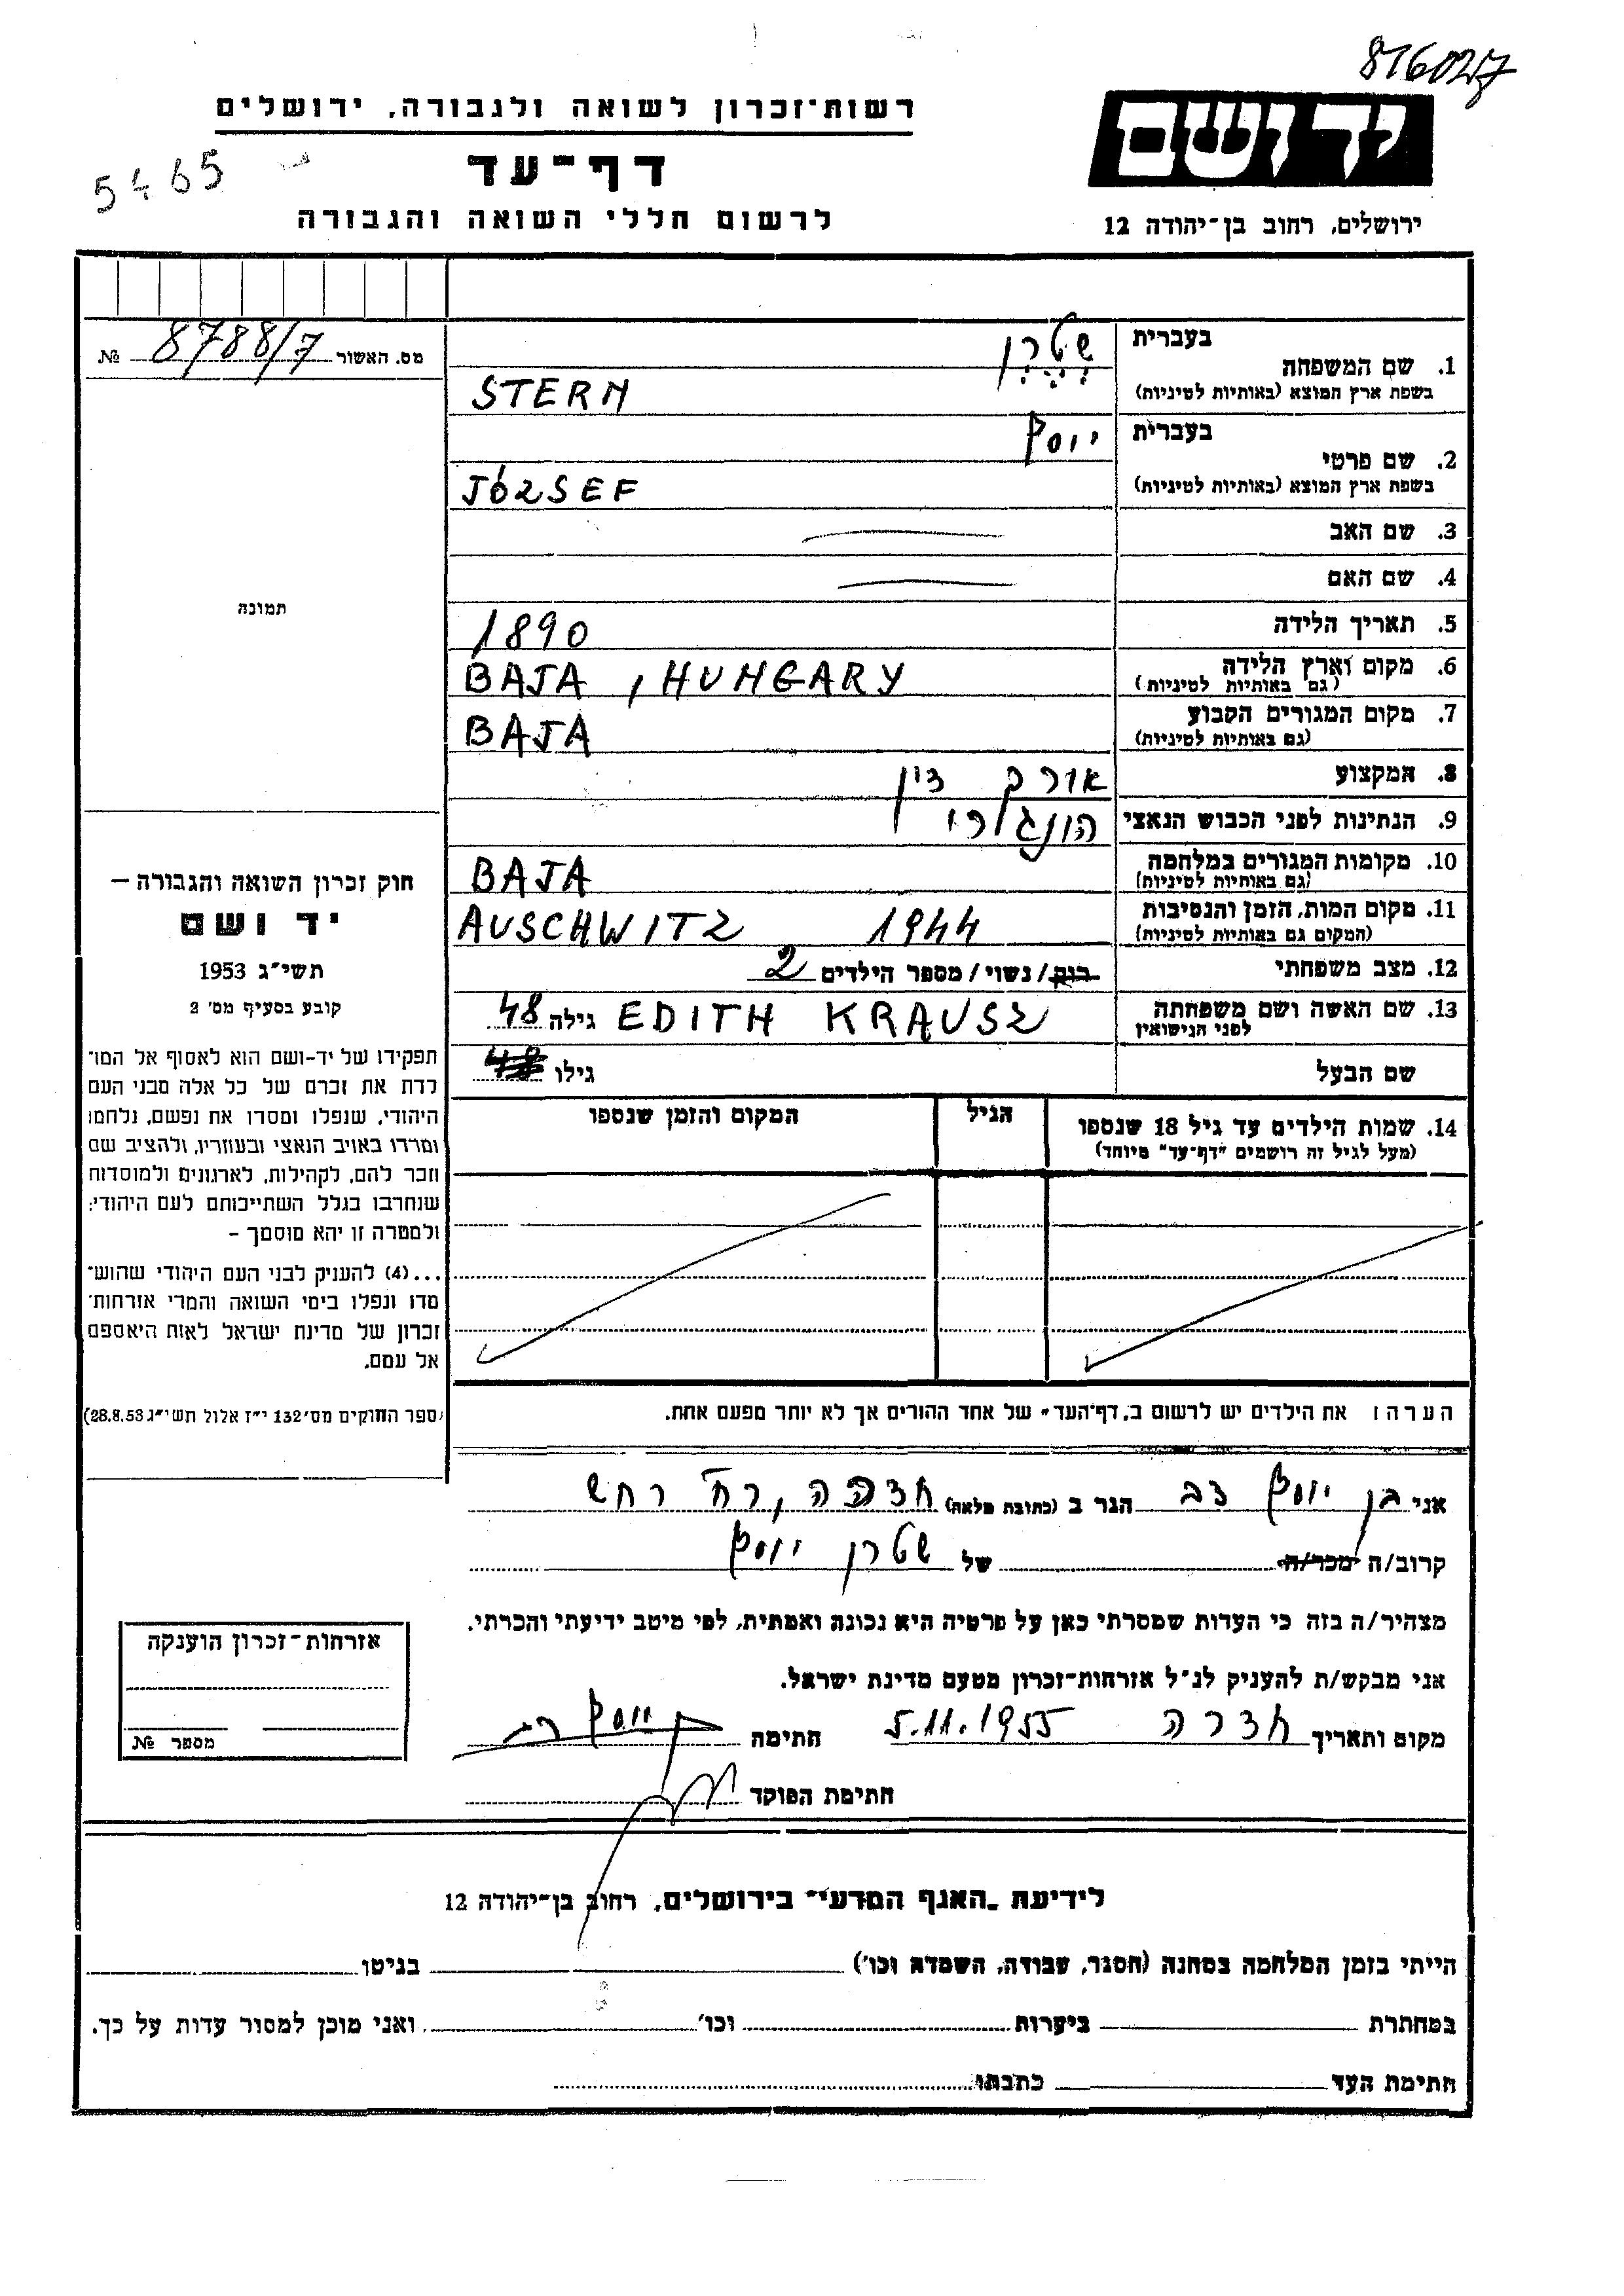 816027
רשות־זכרון לשואה ולגבורה, ירושלים
יד ושם
דף־עד
5465
לרשום חללי השואה והגבורה
ירושלים, רחוב בן־יהודה 12
מס. האשור 8788/7 №
בעברית שטרן
1. שם המשפחה
בשפת ארץ המוצא (באותיות לטיניות) STERN
בעברית יוסף
2. שם פרטי
בשפת ארץ המוצא (באותיות לטיניות) JÓZSEF
3. שם האב
4. שם האם
5. תאריך הלידה 1890
6. מקום וארץ הלידה BAJA, HUNGARY
(גם באותיות לטיניות)
7. מקום המגורים הקבוע BAJA
(גם באותיות לטיניות)
8. המקצוע אורך דין
9. הנתינות לפני הכבוש הנאצי הונגרי
10. מקומות המגורים במלחמה BAJA
(גם באותיות לטיניות)
11. מקום המות, הזמן והנסיבות AUSCHWITZ 1944
(המקום גם באותיות לטיניות)
12. מצב משפחתי רוק/נשוי/מספר הילדים 2
13. שם האשה ושם משפחתה EDITH KRAUSZ גילה 48
לפני הנישואין
שם הבעל גילו 48
14. שמות הילדים עד גיל 18 שנספו הגיל המקום והזמן שנספו
(מעל לגיל זה רושמים "דף־עד" מיוחד)
הערה: את הילדים יש לרשום ב"דף־העד" של אחד ההורים אך לא יותר מפעם אחת.
תמונה
חוק זכרון השואה והגבורה —
יד ושם
תשי"ג 1953
קובע בסעיף מס' 2
תפקידו של יד-ושם הוא לאסוף אל המו־
לדת את זכרם של כל אלה מבני העם
היהודי, שנפלו ומסרו את נפשם, נלחמו
ומרדו באויב הנאצי ובעוזריו, ולהציב שם
וזכר להם, לקהילות, לארגונים ולמוסדות
שנחרבו בגלל השתייכותם לעם היהודי;
ולמטרה זו יהא מוסמך —
...(4) להעניק לבני העם היהודי שהוש־
מדו ונפלו בימי השואה והמרי אזרחות־
זכרון של מדינת ישראל לאות היאספם
אל עמם.
(ספר החוקים מס' 132 י"ז אלול תשי"ג 28.8.53)
אני בן יוסף דב הגר ב (כתובת מלאה) חדרה, רח' רחש
קרוב/ה מכר/ה של שטרן יוסף
מצהיר/ה בזה כי העדות שמסרתי כאן על פרטיה היא נכונה ואמתית, לפי מיטב ידיעתי והכרתי.
אני מבקש/ת להעניק לנ"ל אזרחות־זכרון מטעם מדינת ישראל.
מקום ותאריך חדרה 5.11.1955 חתימה בן יוסף דב
חתימת הפוקד
אזרחות־זכרון הוענקה
מספר №
לידיעת "האגף המדעי" בירושלים, רחוב בן־יהודה 12
הייתי בזמן המלחמה במחנה (הסגר, עבודה, השמדה וכו') בגיטו
במחתרת ביערות וכו' ואני מוכן למסור עדות על כך.
חתימת העד כתבתו